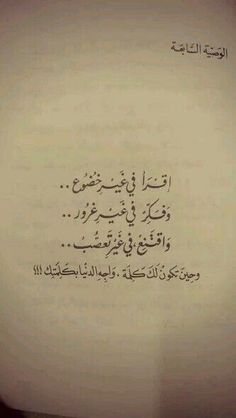 الوصيّة السّابعَة
اِقرَأ في غَيْرِ خضُوع ..
وَفكِّر في غَيْرِ غرُور ..
وَاقتَنِع في غَيْرِ تعَصُّب ..
وحِينَ تكونُ لَكَ كلِمَة ، وَاجِهِ الدنْيا بكلِمَتِك !!!